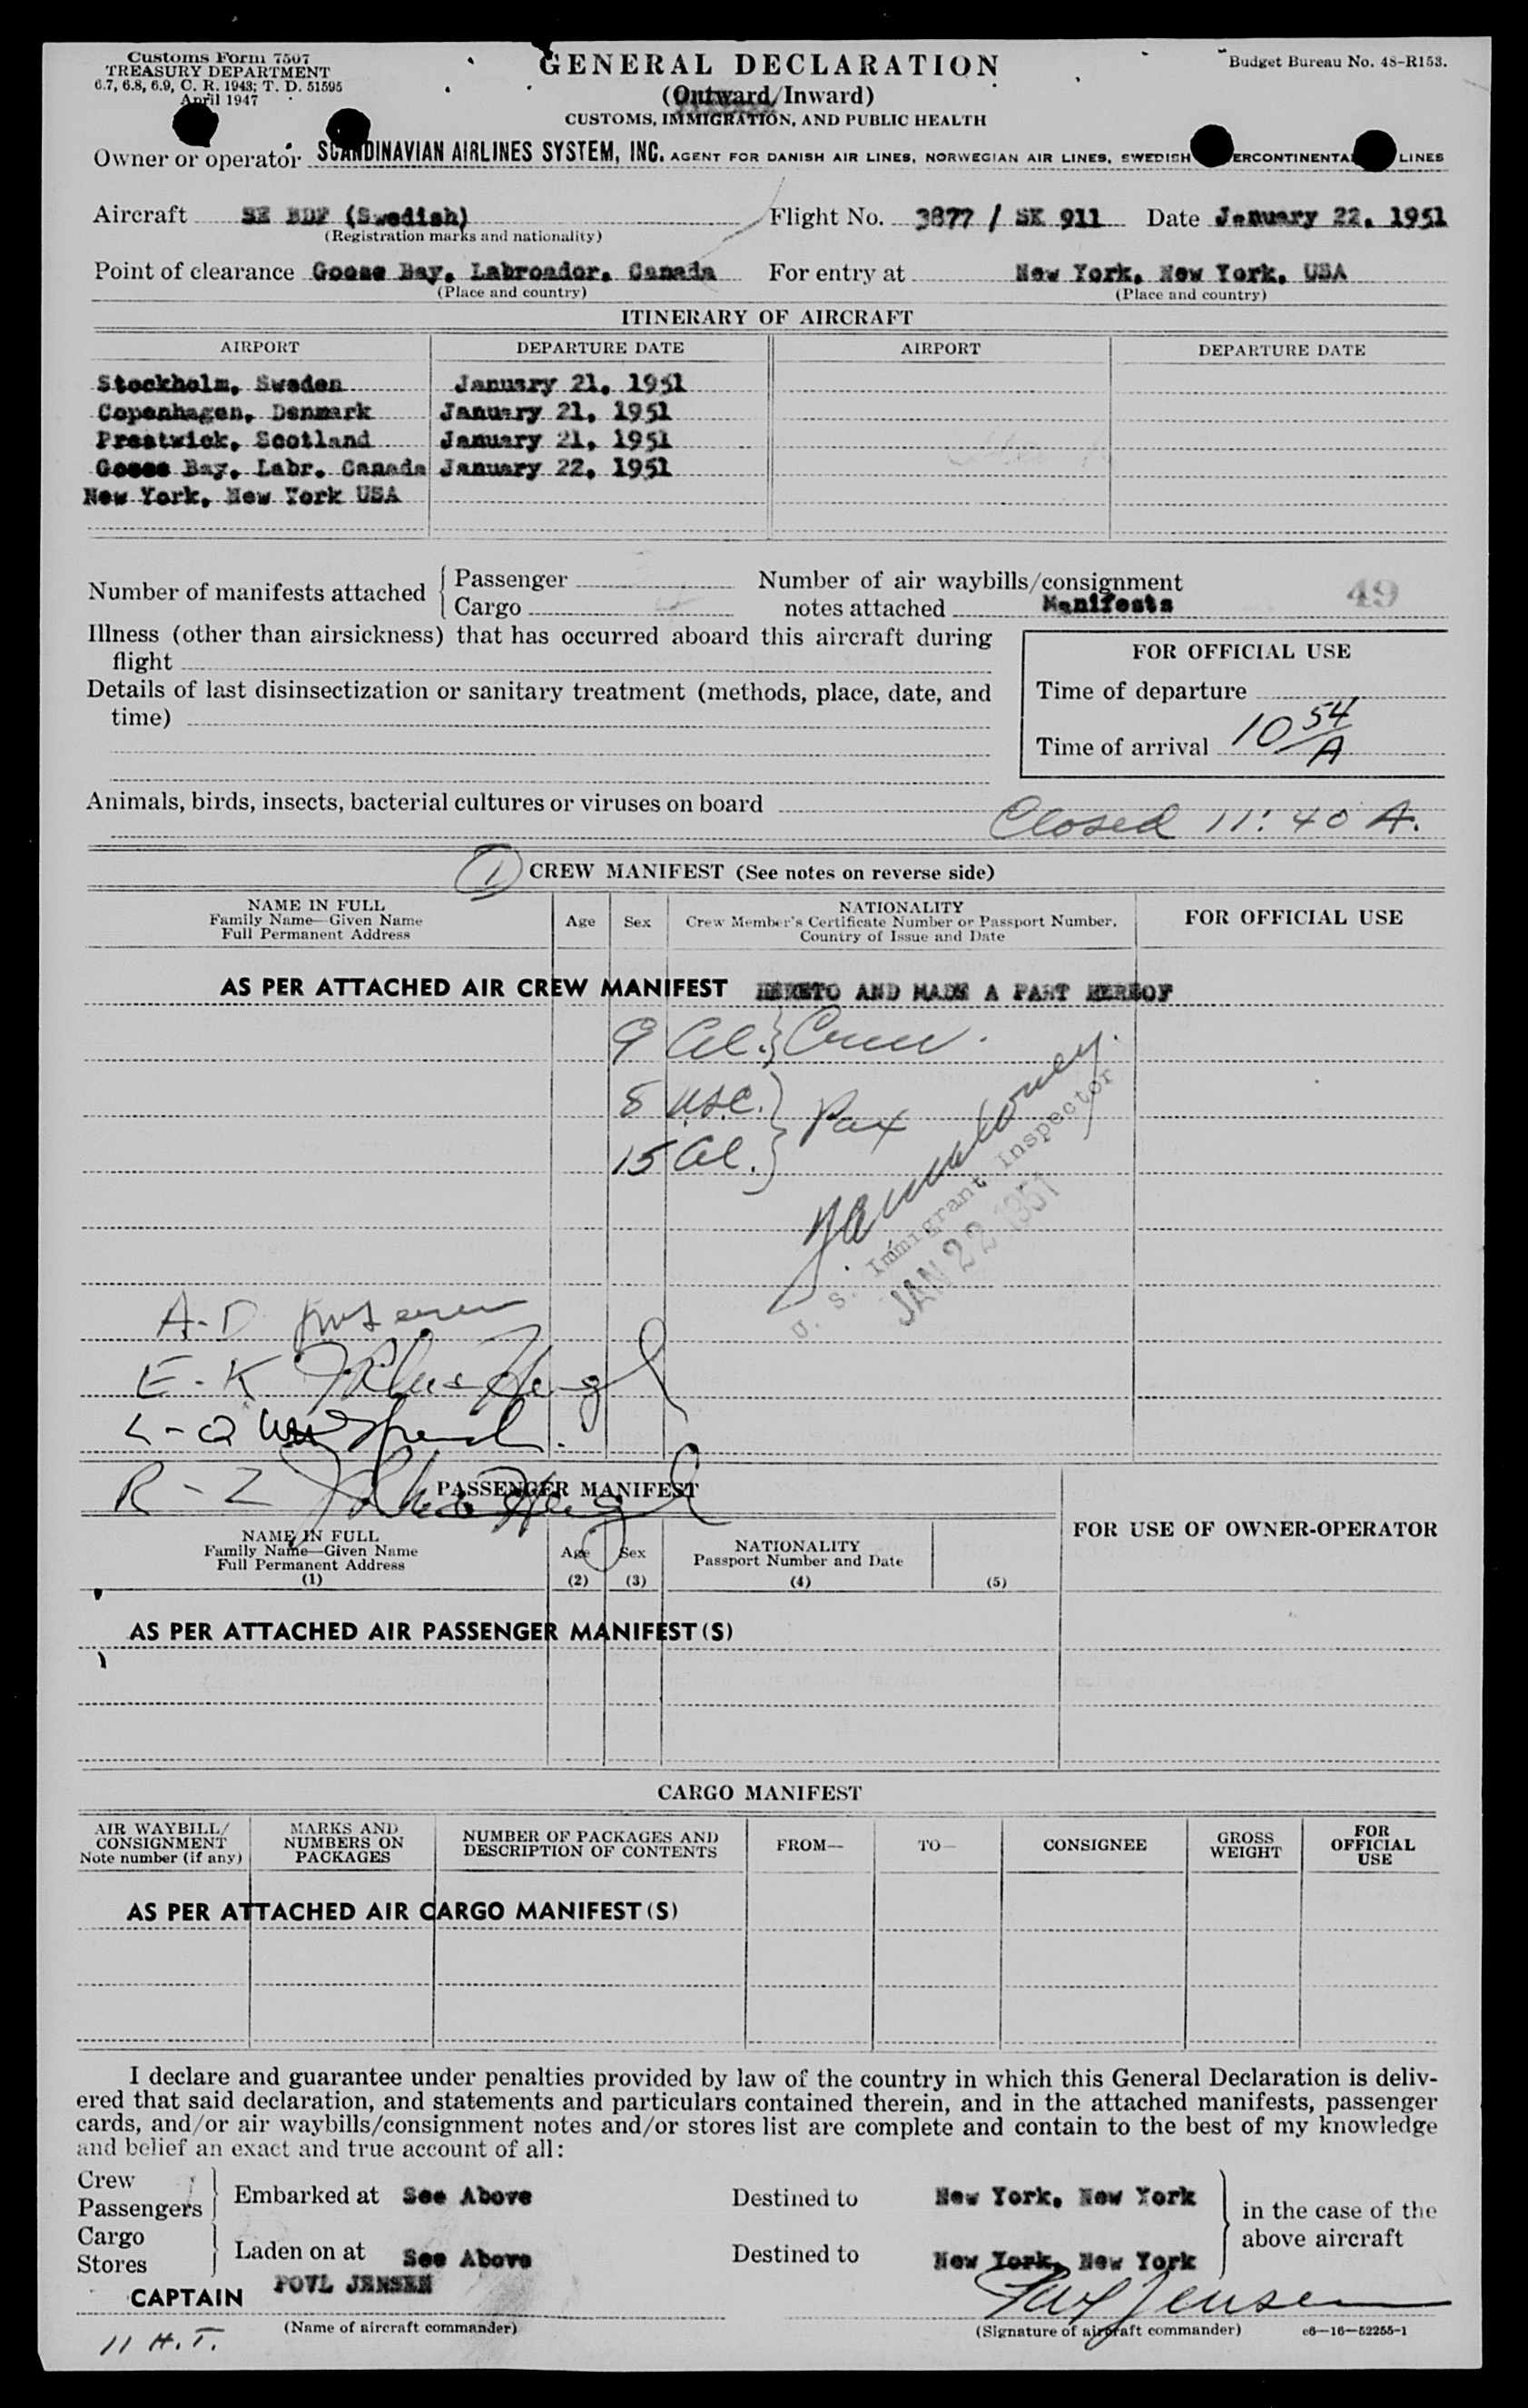 Customs Form 7507
TREASURY DEPARTMENT
6.7, 6.8, 6.9, C. R. 1943; T. D. 51595
April 1947
GENERAL DECLARATION
(Outward/Inward)
CUSTOMS, IMMIGRATION, AND PUBLIC HEALTH
Budget Bureau No. 48-R153.
Owner or operator SCANDINAVIAN AIRLINES SYSTEM, INC. AGENT FOR DANISH AIR LINES, NORWEGIAN AIR LINES, SWEDISH ERCONTINENTA LINES
Aircraft SE BDF (Swedish) Flight No. 3877 / SK 911 Date January 22, 1951
(Registration marks and nationality)
Point of clearance Goose Bay, Labroador, Canada For entry at New York, New York, USA
(Place and country) (Place and country)
ITINERARY OF AIRCRAFT
AIRPORT DEPARTURE DATE AIRPORT DEPARTURE DATE
Stockholm, Sweden January 21, 1951
Copenhagen, Denmark January 21, 1951
Prestwick, Scotland January 21, 1951
Goose Bay, Labr. Canada January 22, 1951
New York, New York USA
Number of manifests attached { Passenger
Cargo
Number of air waybills/consignment
notes attached Manifests 49
Illness (other than airsickness) that has occurred aboard this aircraft during
flight
Details of last disinsectization or sanitary treatment (methods, place, date, and
time)
FOR OFFICIAL USE
Time of departure
Time of arrival 10 54 A
Animals, birds, insects, bacterial cultures or viruses on board
Closed 11:40 A.
1 CREW MANIFEST (See notes on reverse side)
NAME IN FULL
Family Name—Given Name
Full Permanent Address
Age Sex
NATIONALITY
Crew Member's Certificate Number or Passport Number,
Country of Issue and Date
FOR OFFICIAL USE
AS PER ATTACHED AIR CREW MANIFEST HERETO AND MADE A PART HEREOF
9 Al. } Crew.
8 USC. } Pax
15 Al.
U. S. Immigrant Inspector
JAN 22 1951
A-D
E-K
L-Q
R-Z
PASSENGER MANIFEST
NAME IN FULL
Family Name—Given Name
Full Permanent Address
(1)
Age
(2)
Sex
(3)
NATIONALITY
Passport Number and Date
(4)
(5)
FOR USE OF OWNER-OPERATOR
AS PER ATTACHED AIR PASSENGER MANIFEST(S)
CARGO MANIFEST
AIR WAYBILL/
CONSIGNMENT
Note number (if any)
MARKS AND
NUMBERS ON
PACKAGES
NUMBER OF PACKAGES AND
DESCRIPTION OF CONTENTS
FROM—
TO—
CONSIGNEE
GROSS
WEIGHT
FOR
OFFICIAL
USE
AS PER ATTACHED AIR CARGO MANIFEST(S)
I declare and guarantee under penalties provided by law of the country in which this General Declaration is deliv-
ered that said declaration, and statements and particulars contained therein, and in the attached manifests, passenger
cards, and/or air waybills/consignment notes and/or stores list are complete and contain to the best of my knowledge
and belief an exact and true account of all:
Crew
Passengers } Embarked at See Above Destined to New York, New York
Cargo
Stores } Laden on at See Above Destined to New York, New York
in the case of the
above aircraft
CAPTAIN POVL JENSEN Povl Jensen
(Name of aircraft commander) (Signature of aircraft commander) c6—16—52255-1
11 H.T.